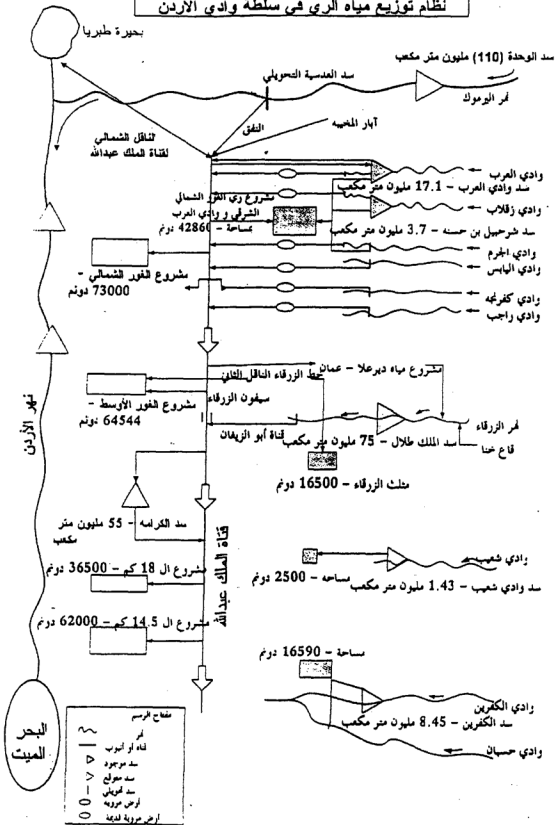 نظام توزيع مياه الري في سلطة وادي الأردن
بحيرة طبريا
سد الوحدة (110) مليون متر مكعب
سد العدسية التحويلي
نهر اليرموك
النفق
آبار المخيبه
الناقل الشمالي
لقناة الملك عبدالله
وادي العرب
سد وادي العرب – 17.1 مليون متر مكعب
وادي زقلاب
مشروع ري الغور الشمالي
الشرقي و وادي العرب
بمساحة – 42860 دونم
سد شرحبيل بن حسنه – 3.7 مليون متر مكعب
وادي الجرم
وادي اليابس
مشروع الغور الشمالي –
73000 دونم
وادي كفرنجه
وادي راجب
مشروع مياه ديرعلا – عمان
خط الزرقاء الناقل الثاني
سيفون الزرقاء
مشروع الغور الأوسط –
64544 دونم
نهر الأردن
نهر الزرقاء
قناة أبو الزيغان
سد الملك طلال – 75 مليون متر مكعب
قاع خنا
مثلث الزرقاء – 16500 دونم
سد الكرامه – 55 مليون متر
مكعب
قناة الملك عبدالله
مشروع ال 18 كم – 36500 دونم
وادي شعيب
مساحه – 2500 دونم
سد وادي شعيب – 1.43 مليون متر مكعب
مشروع ال 14.5 كم – 62000 دونم
مساحة – 16590 دونم
وادي الكفرين
سد الكفرين – 8.45 مليون متر مكعب
وادي حسبان
البحر
الميت
مفتاح الرسم
نهر
قناة أو أنبوب
سد موجود
سد متوقع
سد تحويلي
أرض مرويه
أرض مروية قديمة